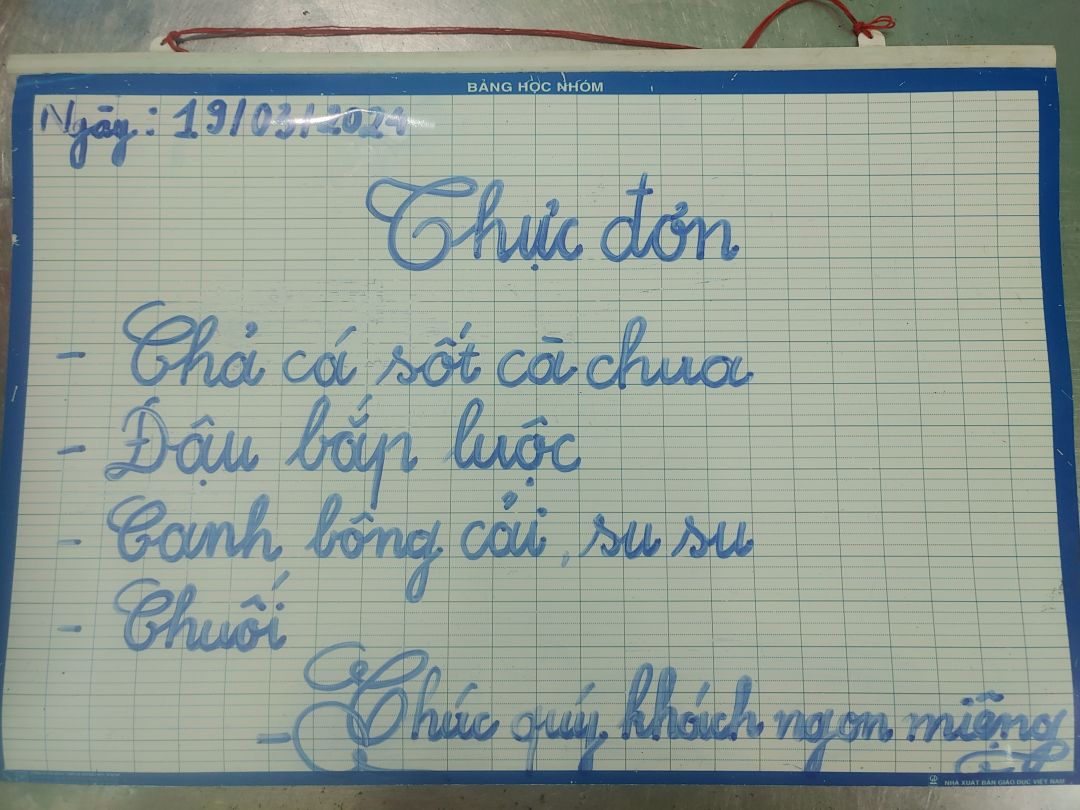 BẢNG HỌC NHÓM
Ngày: 19/03/2024
Thực đơn
- Chả cá sốt cà chua
- Đậu bắp luộc
- Canh bông cải, su su
- Chuối
- Chúc quý khách ngon miệng
NHÀ XUẤT BẢN GIÁO DỤC VIỆT NAM